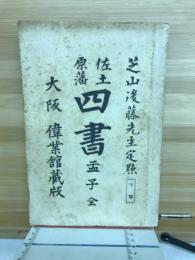 芝山後藤先生定點
佐土原藩
四書 孟子 全
大阪 偉業館藏版